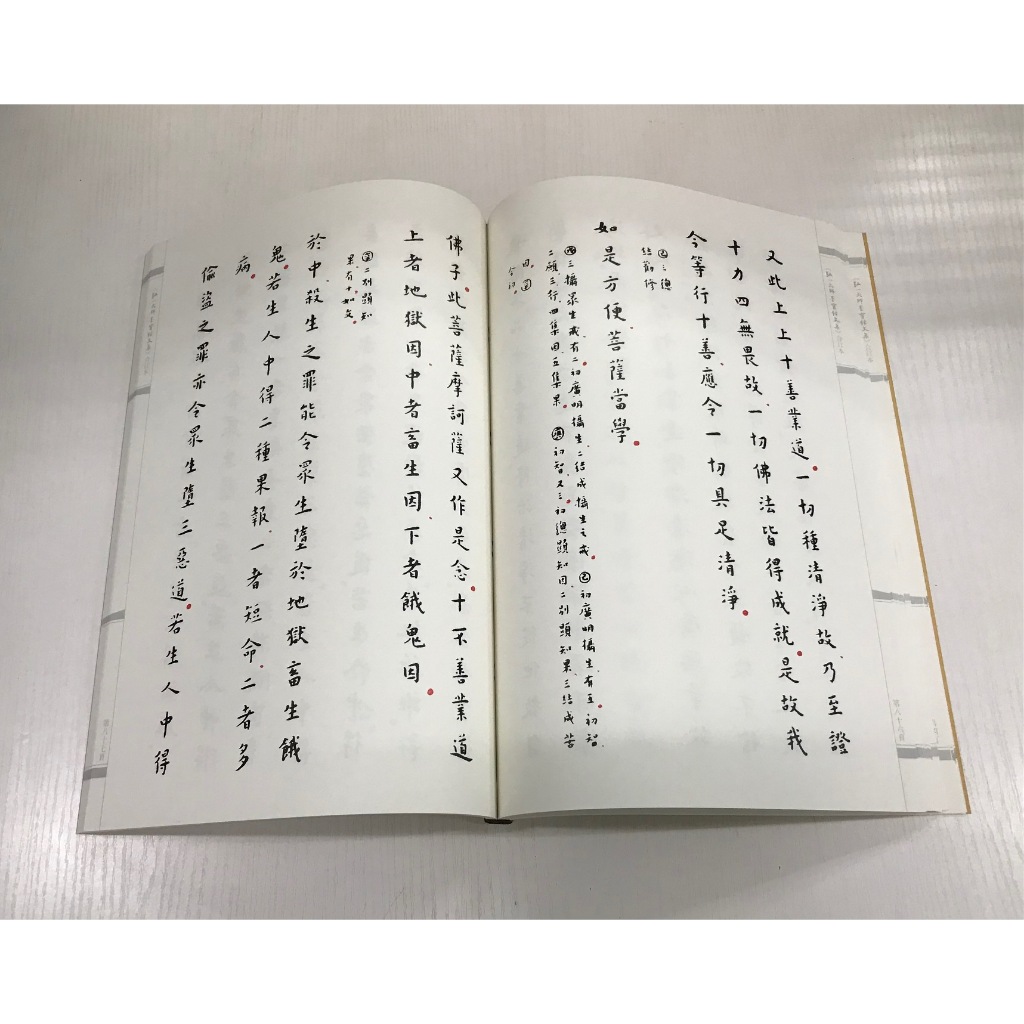 又此上上十善業道一切種清淨故乃至證
十力四無畏故一切佛法皆得成就是故我
今等行十善應令一切具足清淨
㊁三總
結勸修
如是方便菩薩當學
三攝眾生戒有二初廣明攝生二結成攝生之戒 初廣明攝生有五初智
二願三行四集因五集果 初智又三初總顯知因二別顯知果三結成苦
因
今初
佛子此菩薩摩訶薩又作是念十不善業道
上者地獄因中者畜生因下者餓鬼因
二別顯知
果有十如文
於中殺生之罪能令眾生墮於地獄畜生餓
鬼若生人中得二種果報一者短命二者多
病
偷盜之罪亦令眾生墮三惡道若生人中得